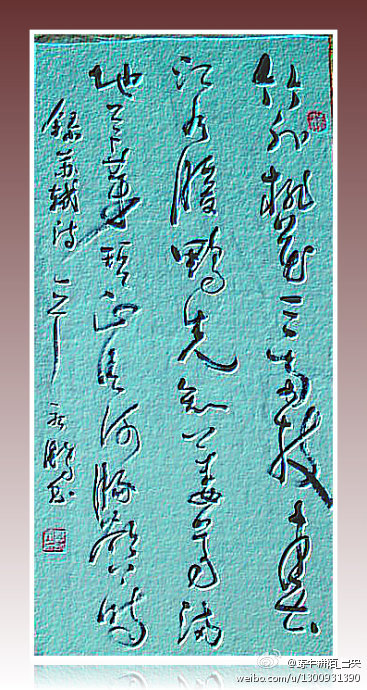 竹外桃花三两枝春
江水暖鴨先知蒌蒿满
地芦芽短正是河豚欲上時
録苏軾诗一首
weibo.com/u/1300931390